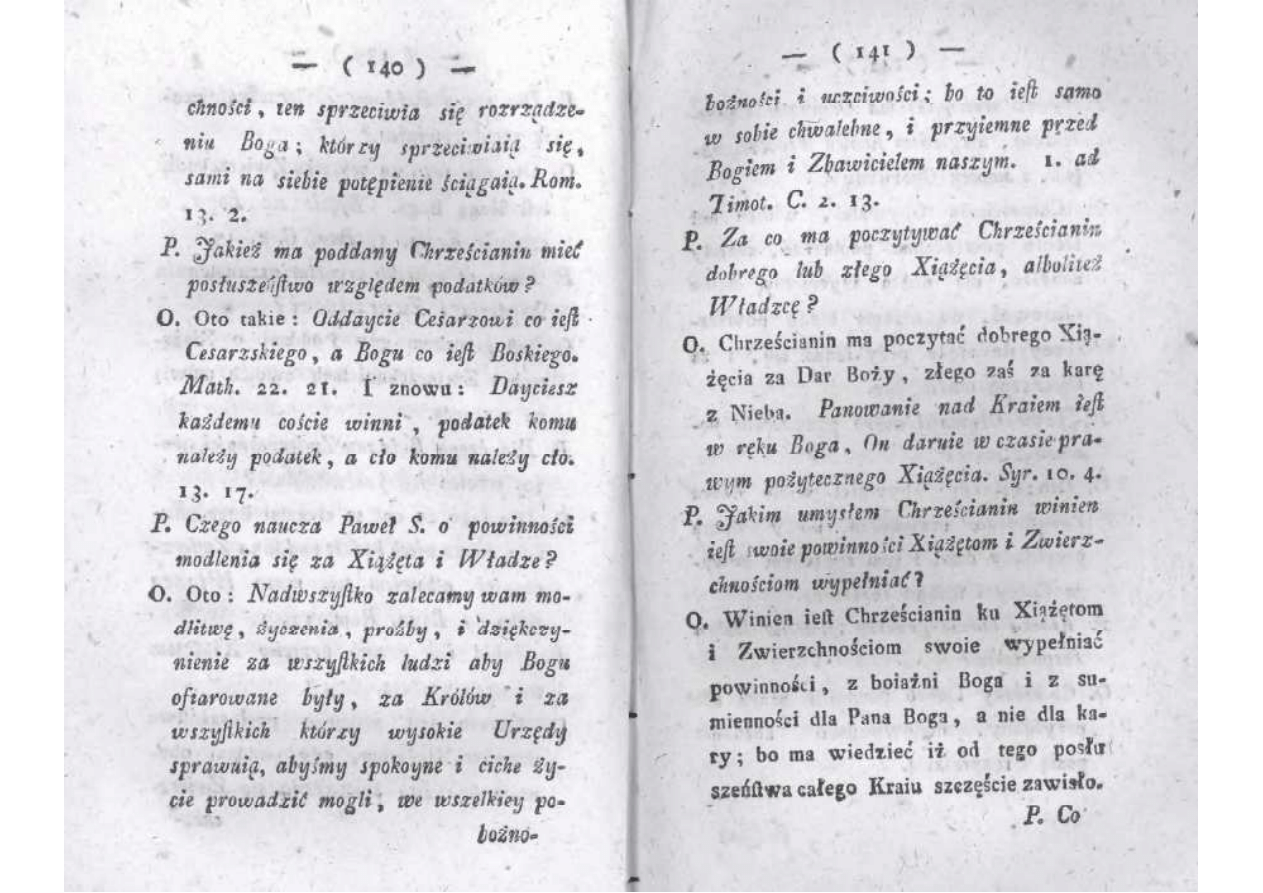 — ( 140 ) —
chności, ten sprzeciwia się rozrządze-
niu Boga; którzy sprzeciwiaią się,
sami na siebie potępienie ściągaią. Rom.
13. 2.
P. Jakież ma poddany Chrześcianin mieć
posłuszeństwo względem podatków?
O. Oto takie: Oddaycie Cesarzowi co iest
Cesarzskiego, a Bogu co iest Boskiego.
Math. 22. 21. I znowu: Dayciesz
każdemu coście winni, podatek komu
należy podatek, a cło komu należy cło.
13. 17.
P. Czego naucza Paweł S. o powinności
modlenia się za Xiążęta i Władze?
O. Oto: Nadwszystko zalecamy wam mo-
dlitwę, życzenia, proźby, i dziękczy-
nienie za wszystkich ludzi aby Bogu
ofiarowane były, za Królów i za
wszystkich którzy wysokie Urzędy
sprawuią, abyśmy spokoyne i ciche ży-
cie prowadzić mogli, we wszelkiey po-
bożno-
— ( 141 ) —
bożności i uczciwości; bo to iest samo
w sobie chwalebne, i przyiemne przed
Bogiem i Zbawicielem naszym. 1. ad
Timot. C. 2. 13.
P. Za co ma poczytywać Chrześcianin
dobrego lub złego Xiążęcia, alboliteż
Władzcę?
O. Chrześcianin ma poczytać dobrego Xią-
żęcia za Dar Boży, złego zaś za karę
z Nieba. Panowanie nad Kraiem iest
w ręku Boga, On daruie w czasie pra-
wym pożytecznego Xiążęcia. Syr. 10. 4.
P. Jakim umysłem Chrześcianin winien
iest swoie powinności Xiążętom i Zwierz-
chnościom wypełniać?
O. Winien iest Chrześcianin ku Xiążętom
i Zwierzchnościom swoie wypełniać
powinności, z boiaźni Boga i z su-
mienności dla Pana Boga, a nie dla ka-
ry; bo ma wiedzieć iż od tego posłu
szeństwa całego Kraiu szczęście zawisło.
P. Co